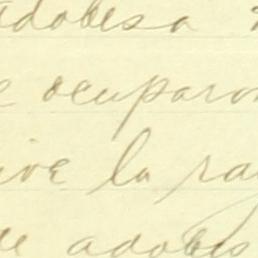 adobesa
e ocuparon
ive la raz
de adobes